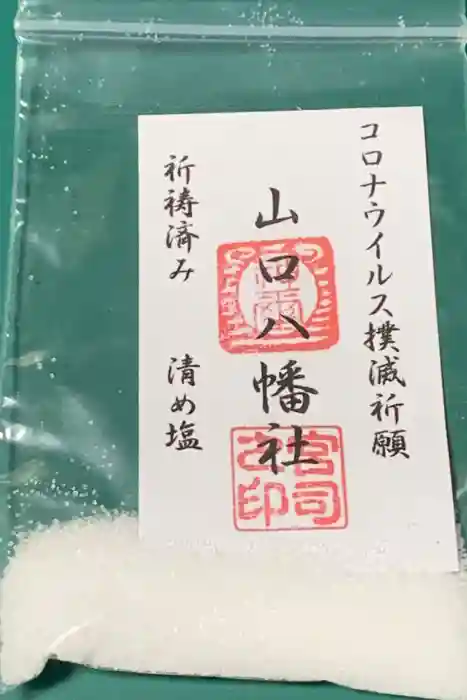 コロナウイルス撲滅祈願
山口八幡社
祈祷済み 清め塩
宮司之印